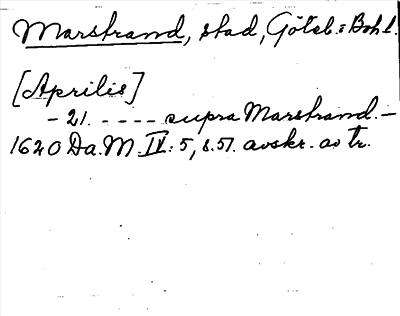 Marstrand, stad, Göteb. o. Boh l.
[Aprilis]
- 21. - - - - supra Marstrand. -
1620 Da. M. IV: 5, s. 57. avskr. av tr.